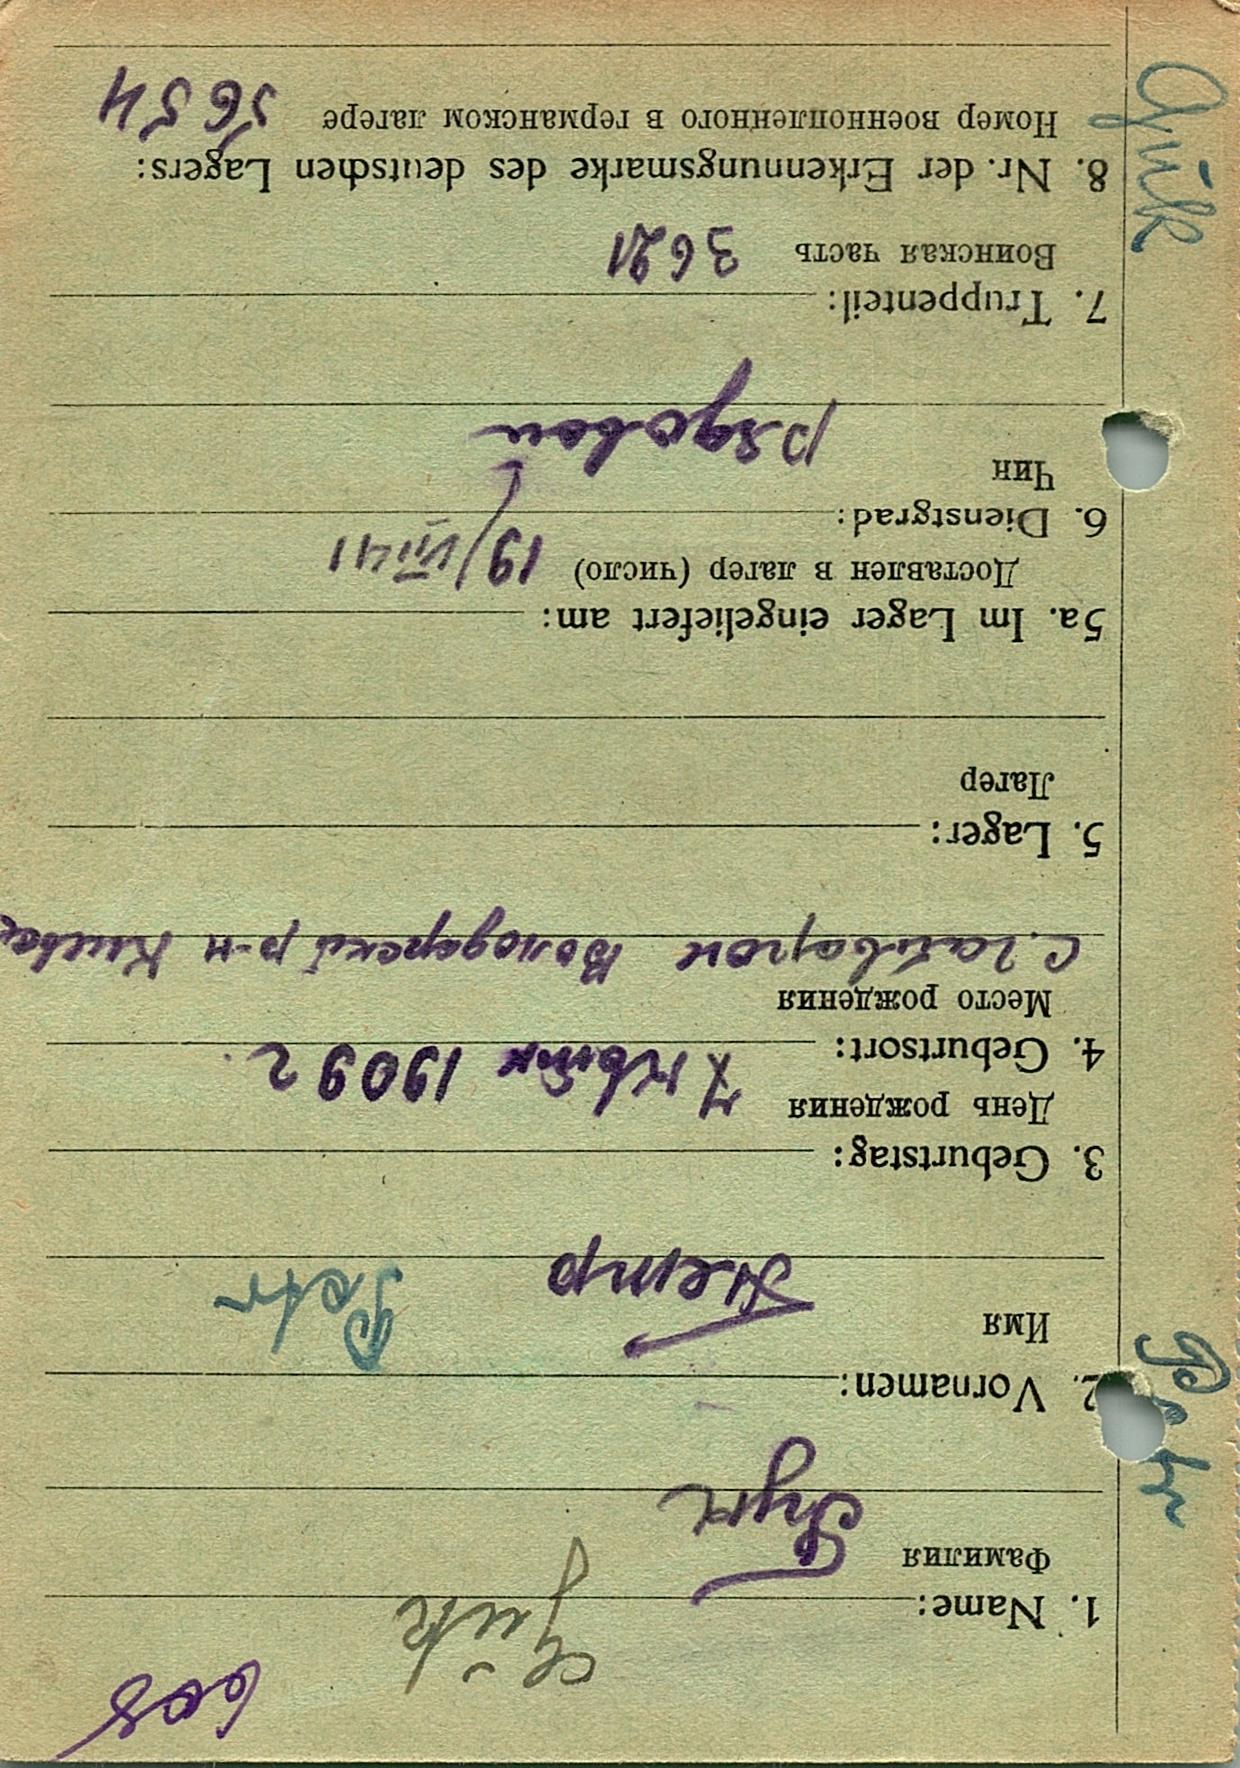 608
Guk
1. Name:
Фамилия Гук
2. Vornamen:
Имя Петр Petr
3. Geburtstag:
День рождения 7 квітня 1909 г.
4. Geburtsort:
Место рождения
с. Володарский р-н Киевс
5. Lager:
Лагер
5a. Im Lager eingeliefert am:
Доставлен в лагер (число) 19/VIII 41
6. Dienstgrad:
Чин рядовой
7. Truppenteil:
Воинская часть 3621
8. Nr. der Erkennungsmarke des deutschen Lagers:
Номер военнопленного в германском лагере 5654
Guk
Petr